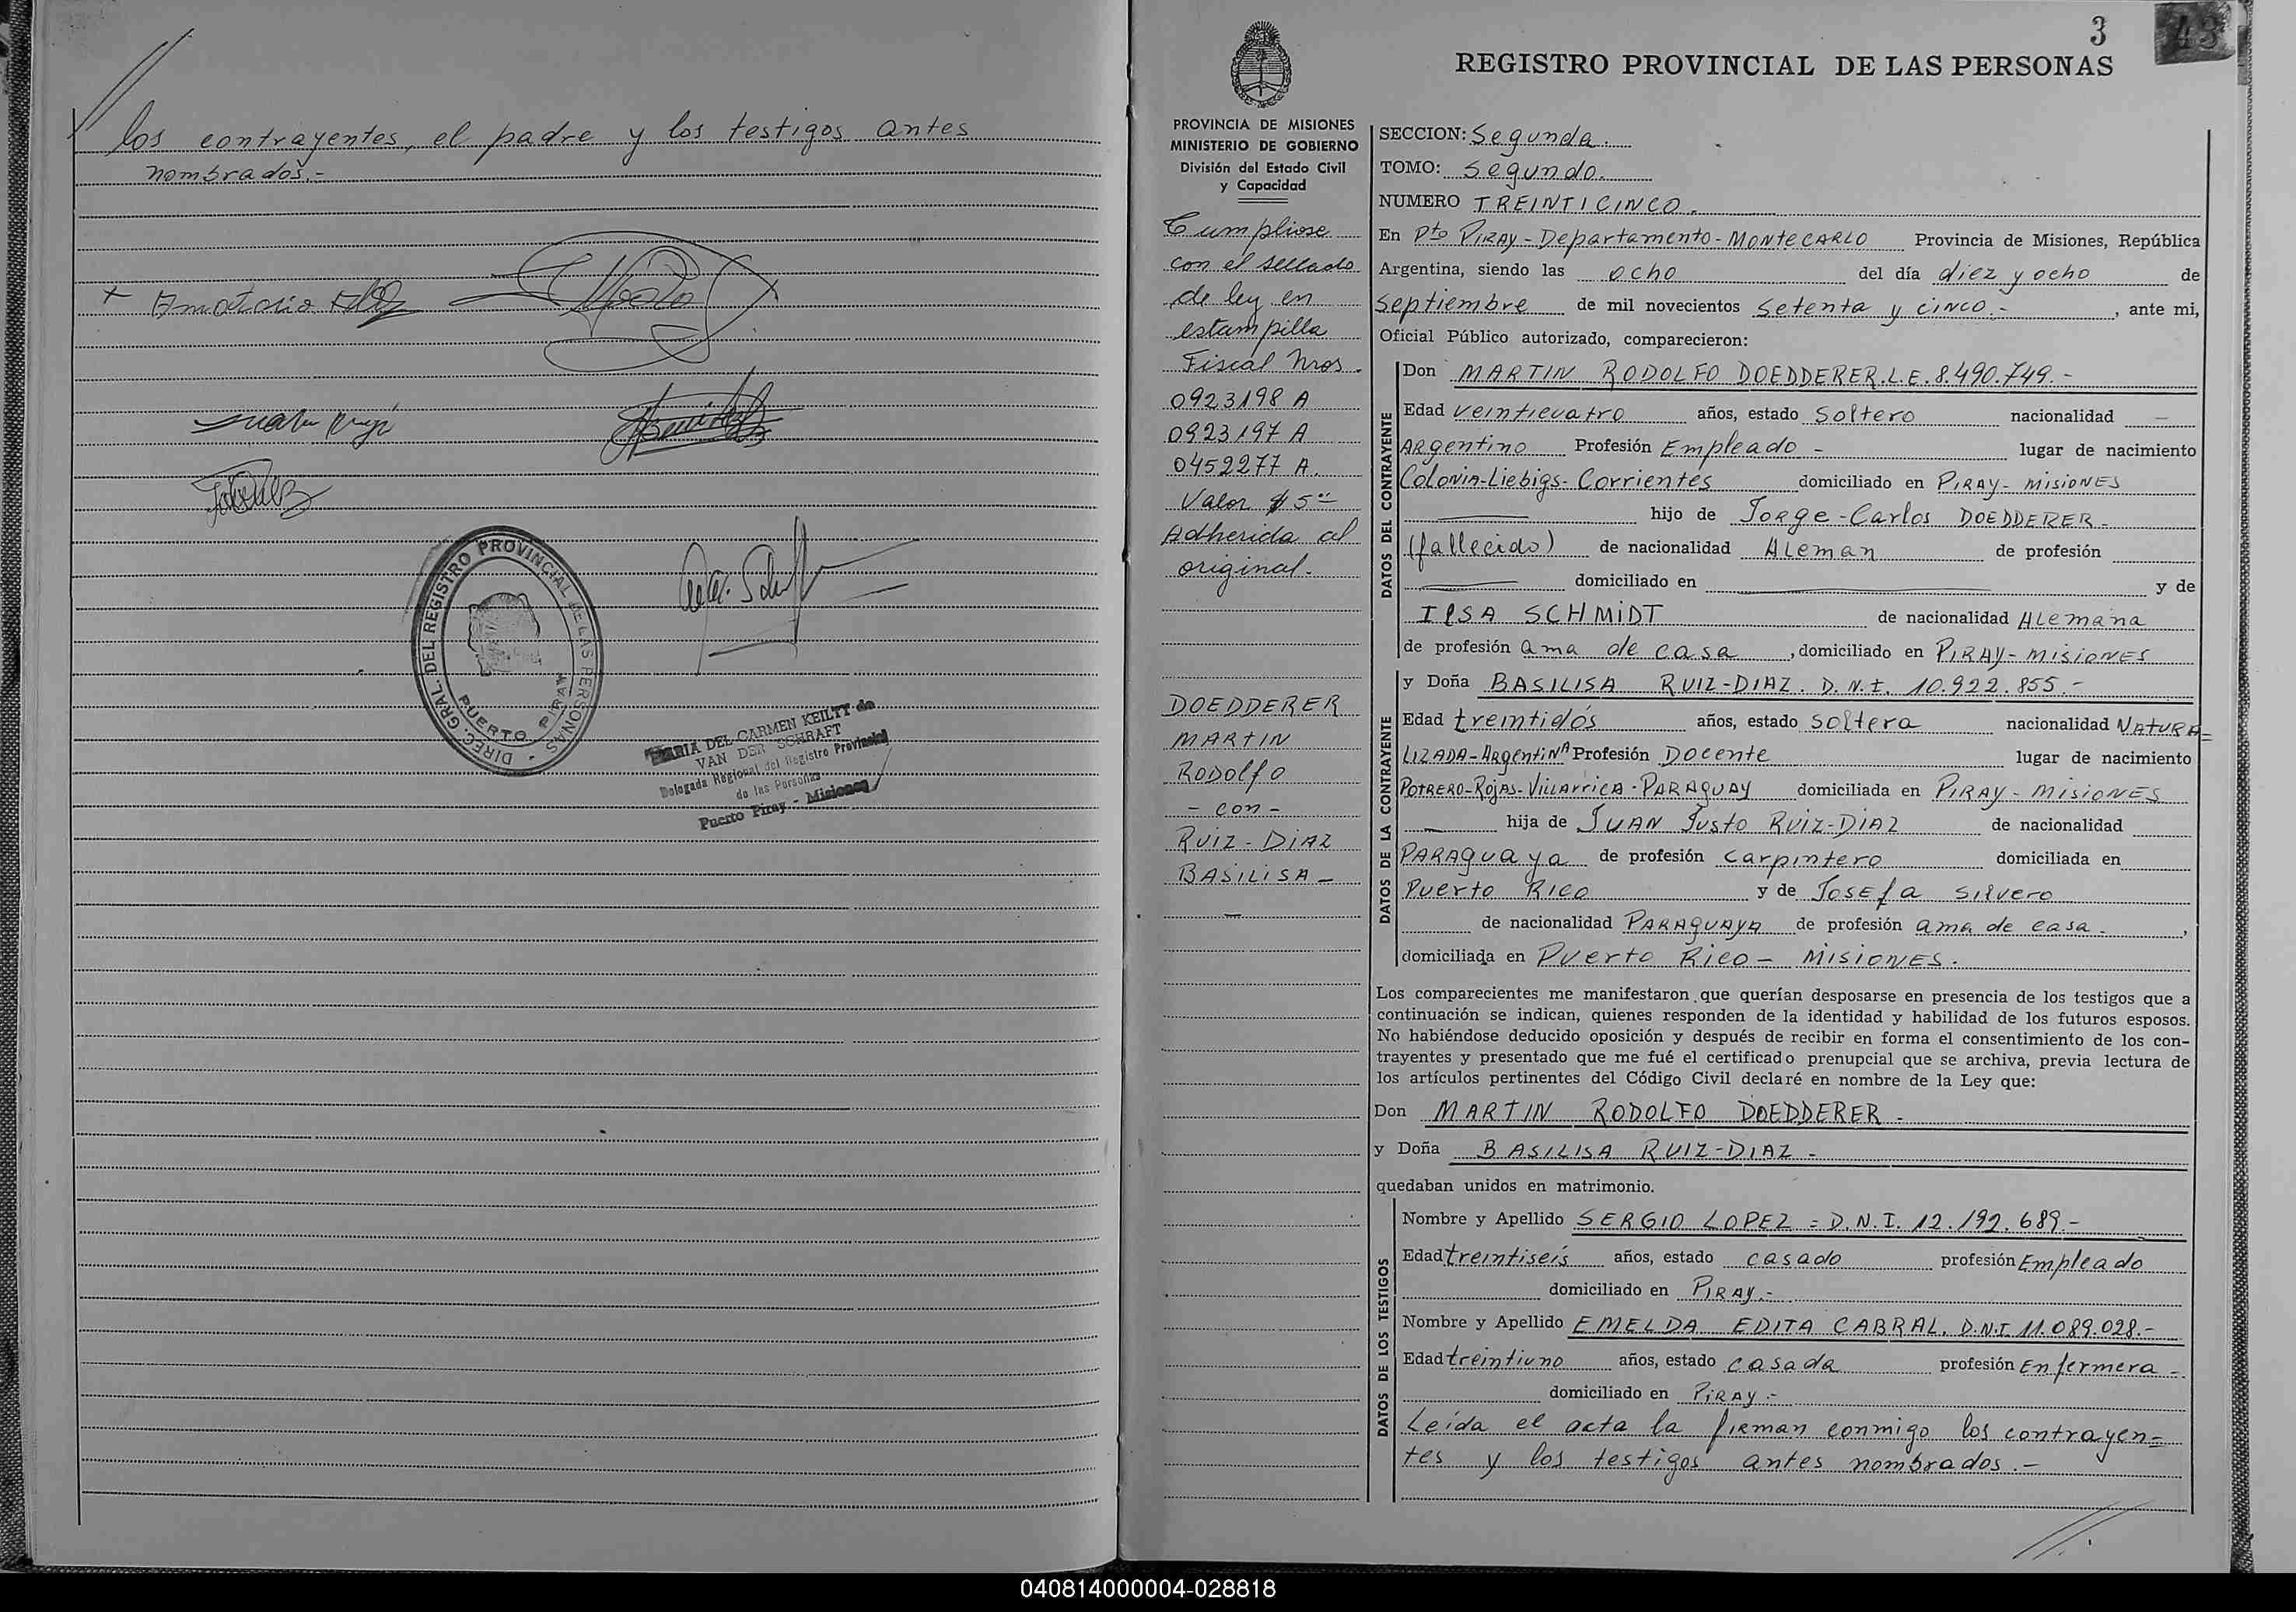 los contrayentes, el padre y los testigos antes
nombrados.-
DIREC. GRAL. DEL REGISTRO PROVINCIAL DE LAS PERSONAS
PUERTO PIRAY
MARIA DEL CARMEN KEILTY de
VAN DER SCHRAFT
Delegada Regional del Registro Provincial
de las Personas
Puerto Piray - Misiones
3
43
REGISTRO PROVINCIAL DE LAS PERSONAS
PROVINCIA DE MISIONES
MINISTERIO DE GOBIERNO
División del Estado Civil
y Capacidad
Cumpliose
con el sellado
de ley en
estampilla
Fiscal Nros.
0923198 A
0923197 A
0452277 A.
Valor $ 5
Adherida al
original.-
DOEDDERER
MARTIN
Rodolfo
- con -
RUIZ - DIAZ
BASILISA -
SECCION: Segunda.
TOMO: Segundo.
NUMERO TREINTICINCO.
En Pto PIRAY - Departamento - MONTECARLO Provincia de Misiones, República
Argentina, siendo las ocho del día diez y ocho de
Septiembre de mil novecientos Setenta y cinco.- , ante mi,
Oficial Público autorizado, comparecieron:
DATOS DEL CONTRAYENTE
Don MARTIN RODOLFO DOEDDERER. L.E. 8.490.749.-
Edad veinticuatro años, estado Soltero nacionalidad
ARgentino Profesión Empleado - lugar de nacimiento
Colonia-Liebigs- Corrientes domiciliado en PIRAY - MISIONES
hijo de Jorge - Carlos DOEDDERER -
(fallecido) de nacionalidad Aleman de profesión
domiciliado en y de
IlSA SCHMIDT de nacionalidad Alemana
de profesión ama de casa , domiciliado en PIRAY - MISIONES
DATOS DE LA CONTRAYENTE
y Doña BASILISA RUIZ-DIAZ. D.N.I. 10.922.855.-
Edad treintidós años, estado Soltera nacionalidad NATURA=
LIZADA-ArgentiNA Profesión Docente lugar de nacimiento
POTRERO-Rojas-VillArricA - PARAGUAY domiciliada en PIRAY - MISIONES
hija de JUAN Justo RUIZ-DIAZ de nacionalidad
PARAguaya de profesión carpintero domiciliada en
Puerto Rico y de Josefa Silvero
de nacionalidad PARAGUAYA de profesión ama de casa - ,
domiciliada en Puerto Rico - MISIONES.
Los comparecientes me manifestaron que querían desposarse en presencia de los testigos que a
continuación se indican, quienes responden de la identidad y habilidad de los futuros esposos.
No habiéndose deducido oposición y después de recibir en forma el consentimiento de los con-
trayentes y presentado que me fué el certificado prenupcial que se archiva, previa lectura de
los artículos pertinentes del Código Civil declaré en nombre de la Ley que:
Don MARTIN RODOLFO DOEDDERER -
y Doña BASILISA RUIZ-DIAZ -
quedaban unidos en matrimonio.
DATOS DE LOS TESTIGOS
Nombre y Apellido SERGIO LOPEZ = D.N.I. 12.192.689.-
Edad treintiseis años, estado casado profesión Empleado
domiciliado en PIRAY.-
Nombre y Apellido EMELDA EDITA CABRAL, D.N.I. 11.089.028.-
Edad treintiuno años, estado casada profesión Enfermera -
domiciliado en PIRAY.-
Leída el acta la firman conmigo los contrayen=
tes y los testigos antes nombrados.-
040814000004-028818